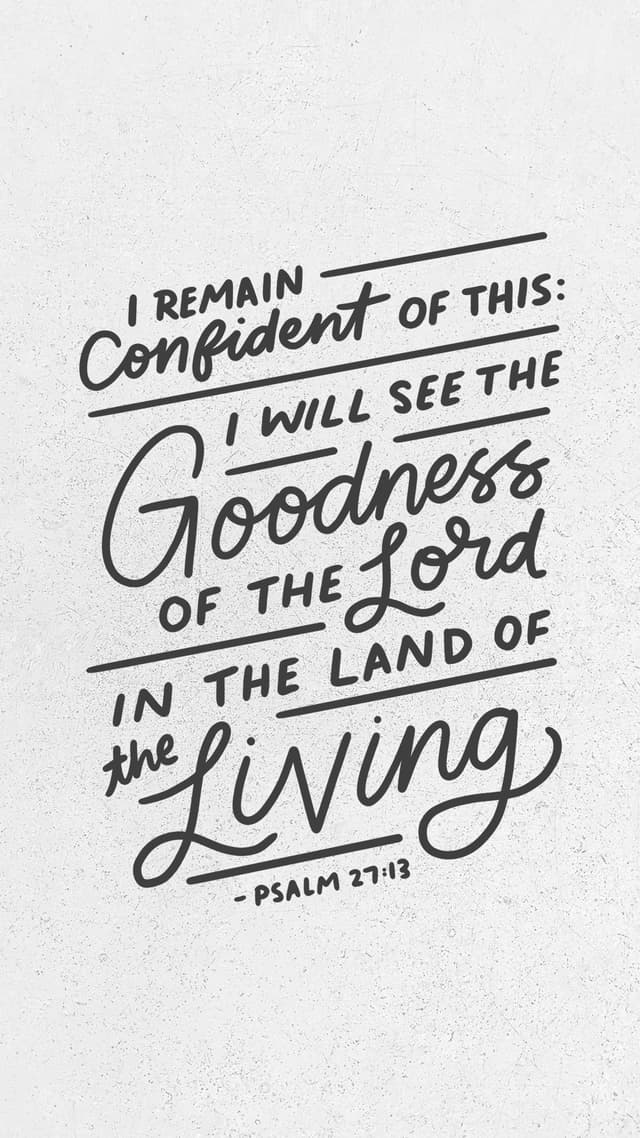 I REMAIN
Confident OF THIS:
I WILL SEE THE
Goodness
OF THE Lord
IN THE LAND OF
the Living
- PSALM 27:13